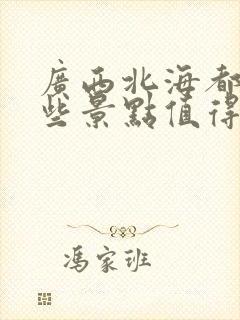 廣西北海都
些景點值得
馮家班